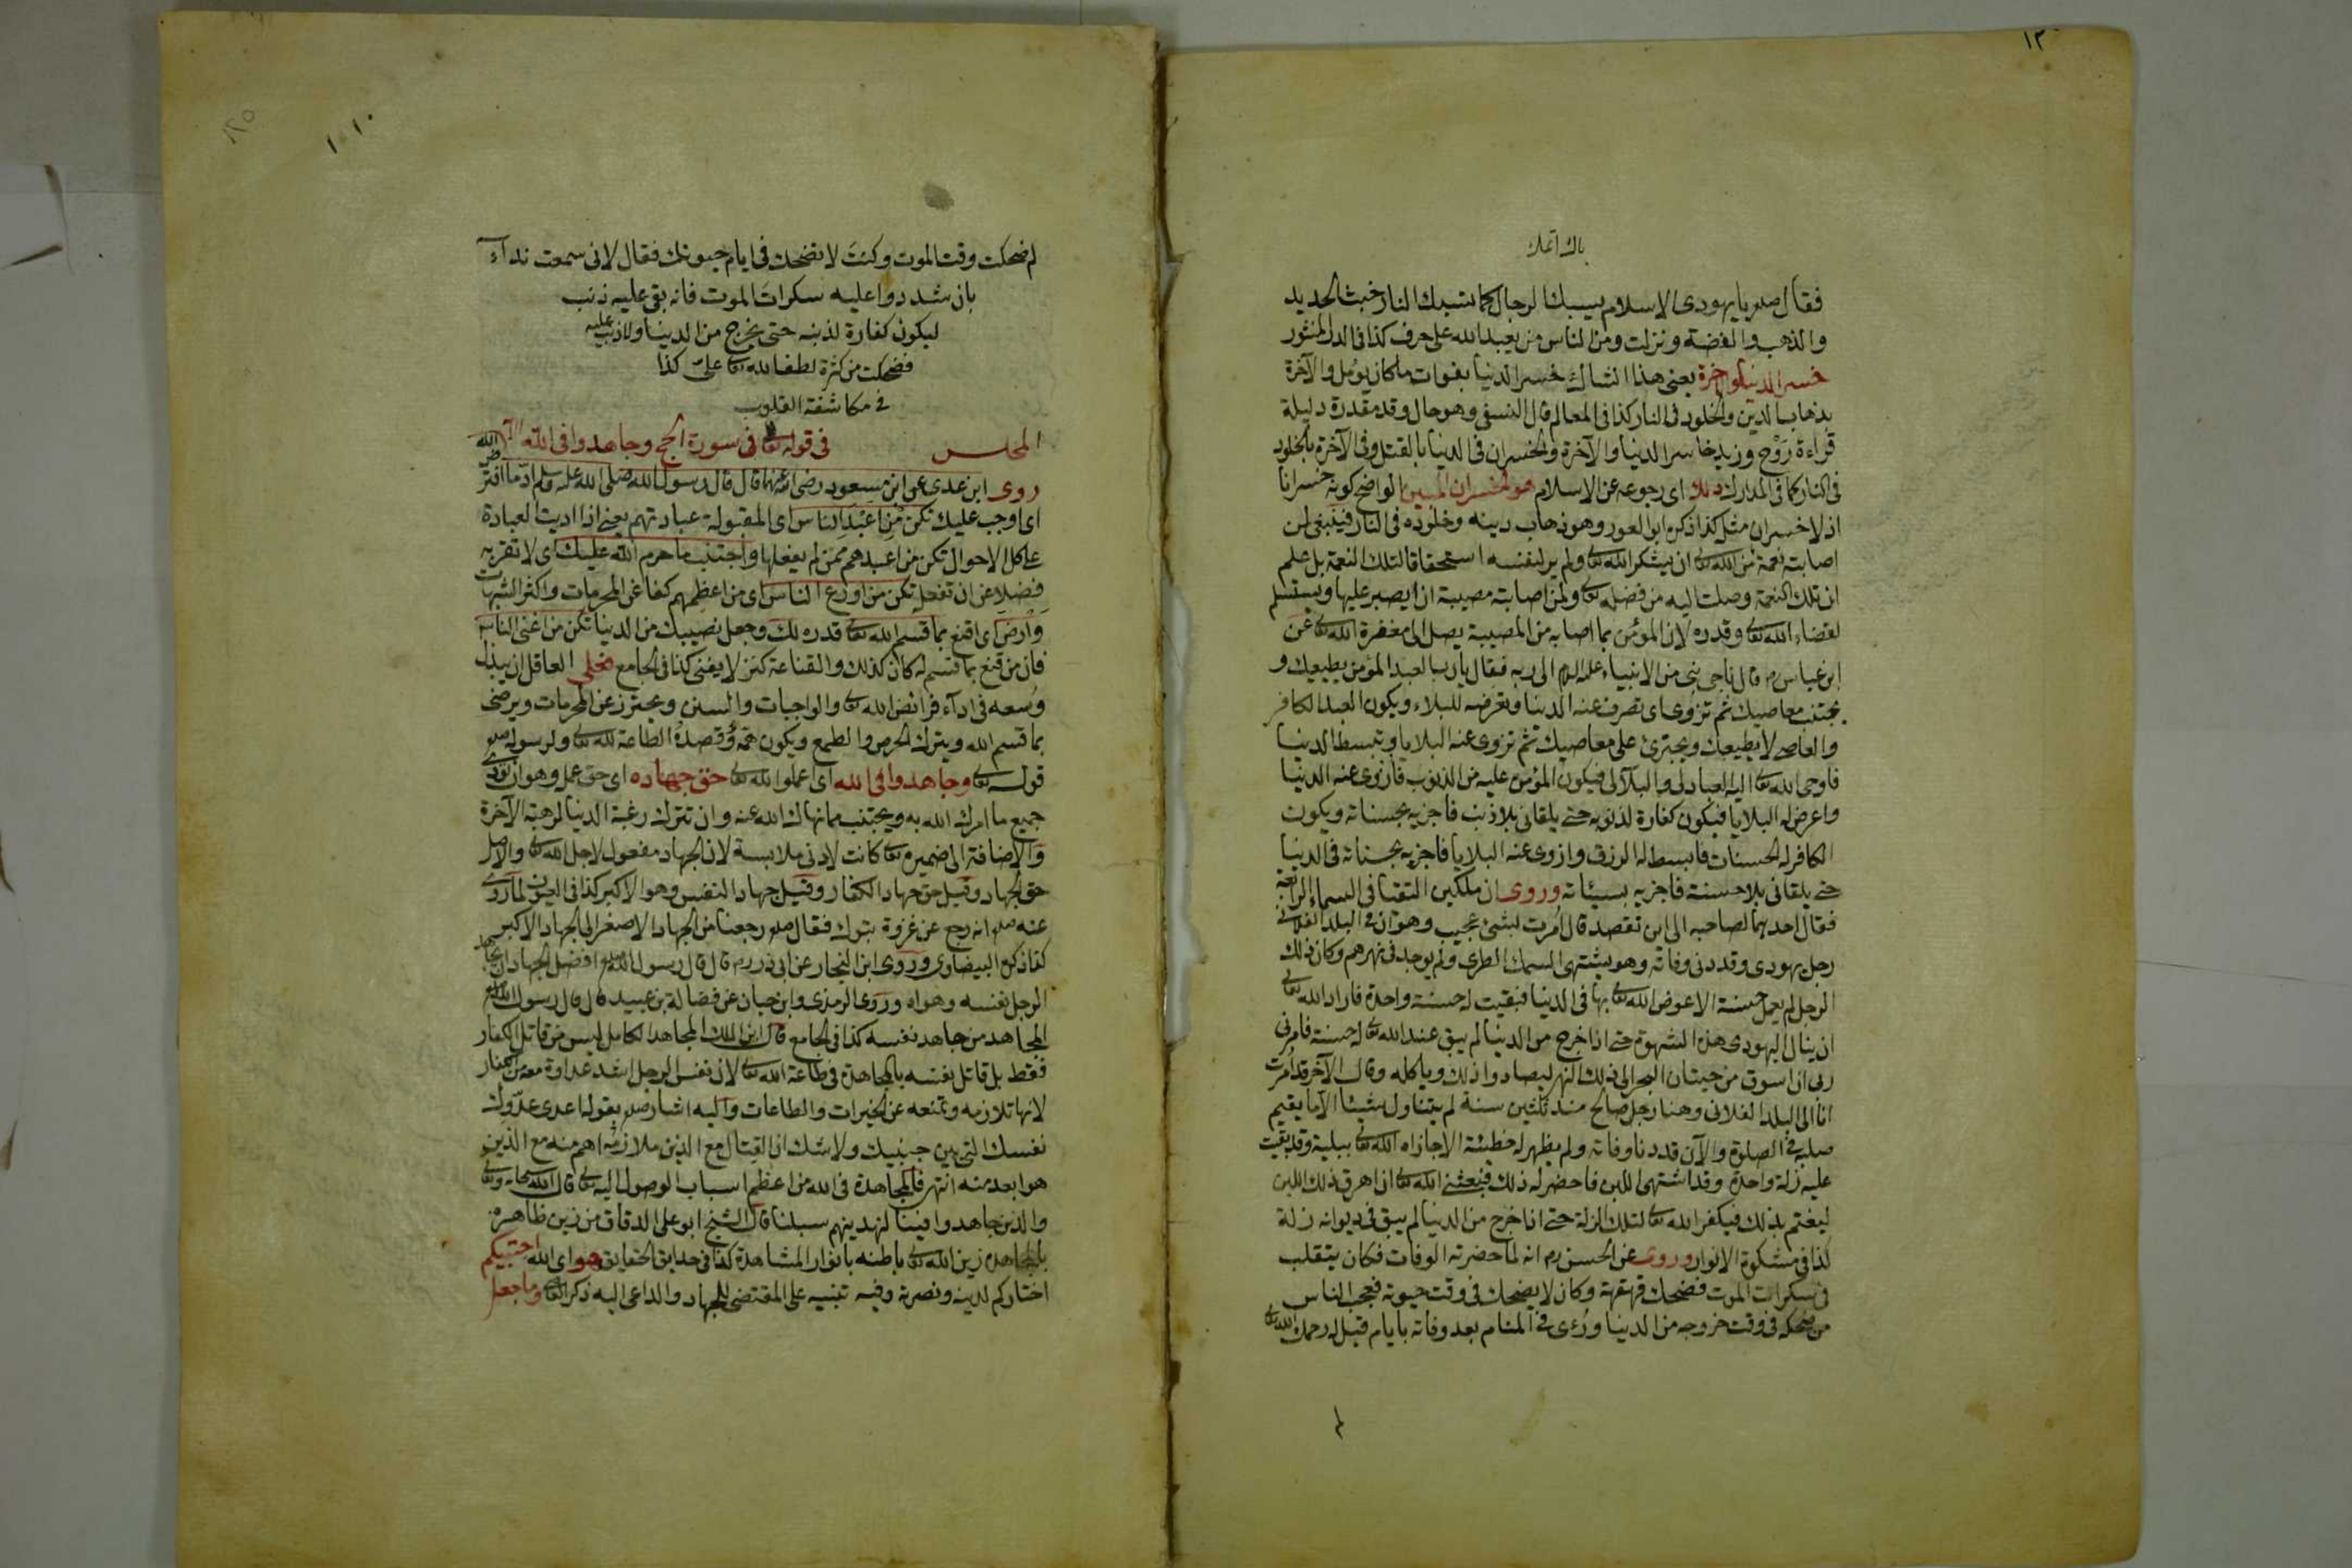 ١٣٠
فقال صلعم يا يهودى الاسلام يسبك الرجال كما تسبك النار خبث الحديد
والذهب والفضة ونزلت ومن الناس من يعبد الله على حرف كذا فى الدر المنثور
خسر الدنيا والآخرة يعنى هذا الشاك خسر الدنيا بفوات ما كان يؤمل والآخرة
بذهاب الدين والخلود فى النار كذا فى المعالم قال النسفى وهو حال وقد مقدرة دليله
قراءة رَوْح وزيد خاسر الدنيا والآخرة والخسران فى الدنيا بالقتل وفى الآخرة بالخلود
فى النار كما فى المدارك ذلك اى رجوعه عن الاسلام هو الخسران المبين الواضح كونه خسرانا
اذ لا خسران مثله كذا ذكره ابو السعود وهو ذهاب دينه وخلوده فى النار فينبغى لمن
اصابته نعمة من الله تعالى ان يشكر الله تعالى ولم ير لنفسه استحقاقا لتلك النعمة بل علم
ان تلك النعمة وصلت اليه من فضله تعالى ولمن اصابته مصيبة ان يصبر عليها ويستسلم
لقضاء الله تعالى وقدره لان المؤمن بما اصابه من المصيبة يصل الى مغفرة الله تعالى عن
ابن عباس رم قال ناجى نبى من الانبياء عليه السلام الى ربه فقال يا رب العبد المؤمن يطيعك و
يجتنب معاصيك ثم تزوى اى تصرف عنه الدنيا وتعرضه للبلاء ويكون العبد الكافر
والعاصى لا يطيعك ويجترئ على معاصيك ثم تزوى عنه البلايا وتبسط الدنيا
فاوحى الله تعالى اليه العباد لى والبلآ لى فيكون المؤمن عليه من الذنوب فازوى عنه الدنيا
واعرض له البلايا فيكون كفارة لذنوبه حتى يلقانى بلا ذنب فاجزيه بحسناته ويكون
الكافر له الحسنات فابسط له الرزق وازوى عنه البلايا فاجزيه بحسناته فى الدنيا
حتى يلقانى بلا حسنة فاجزيه بسيئاته وروى ان ملكين التقتا فى السماء الرابعة
فقال احدهما لصاحبه الى اين تقصد قال امرت لشئ عجيب وهو ان فى البلد الفلانى
رجل يهودى وقد دنى وفاته وهو يشتهى السمك الطرى ولم يوجد فى نهرهم وكان ذلك
الرجل لم يعمل حسنة الا عوض الله تعالى بها فى الدنيا فبقيت له حسنة واحدة فاراد الله تعالى
ان ينال اليهودى هذه الشهوة حتى اذا خرج من الدنيا لم يبق عند الله تعالى له حسنة فامرنى
ربى ان اسوق من حيتان البحر الى ذلك النهر ليصادوا ذلك وياكله وقال الآخر قد امرت
انا الى البلد الفلانى وهنا رجل صالح منذ ثلثين سنة لم يتناول شيئا الا ما يقيم
صلبه فى الصلوة والآن قد دنا وفاته ولم يظهر له خطيئة الا جازاه الله تعالى ببلية وقد بقيت
عليه زلة واحدة وقد اشتهى اللبن فاحضر له ذلك فبعثنى الله تعالى ان اهرق ذلك اللبن
ليغتم بذلك فيكفر الله تعالى لتلك الزلة حتى اذا خرج من الدنيا لم يبق فى ديوانه زلة
كذا فى مشكوة الانوار وروى عن الحسن رم انه لما حضرته الوفات فكان يتقلب
فى سكرات الموت فضحك قهقهة وكان لا يضحك فى وقت حيوته فعجب الناس
من ضحكه فى وقت خروجه من الدنيا ورُءى فى المنام بعد وفاته بايام قيل له رحمك الله تعالى
لم ضحكت وقت الموت وكنت لا تضحك فى ايام حيوتك فقال لانى سمعت نداء
بان شددوا عليه سكرات الموت فانه بقى عليه ذنب
ليكون كفارة لذنبه حتى يخرج من الدنيا ولا ذنب عليه
فضحكت من كثرة لطف الله تعالى على كذا
فى مكاشفة القلوب
المجلس فى قوله تعالى فى سورة الحج وجاهدوا فى الله الآية
روى ابن عدى عن ابن مسعود رضى الله عنهما قال قال رسول الله صلى الله عليه وسلم ادّ ما افترض الله
اى اوجب عليك تكن من اعبد الناس اى المقبولة عبادتهم يعنى اذا اديت العبادة
على كل الاحوال تكن من اعبدهم ممن لم يفعلها واجتنب ما حرم الله عليك اى لا تقربه
فضلا عن ان تفعله تكن من اورع الناس اى من اعظمهم كفا عن المحرمات واكثر الشبهات
وارض اى اقنع بما قسم الله تعالى قدره لك وجعل نصيبك من الدنيا تكن من اغنى الناس
فان من قنع بما قسم له كان كذلك والقناعة كنز لا يفنى كذا فى الجامع فعلى العاقل ان يبذل
وسعه فى ادآء فرائض الله تعالى والواجبات والسنن ويحترز عن المحرمات ويرضى
بما قسم الله ويترك الحرص والطمع ويكون همّه وقصده الطاعة لله تعالى ولرسوله صلعم
قوله تعالى وجاهدوا فى الله اى اعملوا لله تعالى حق جهاده اى حق عمل وهو ان تؤدى
جميع ما امرك الله به ويجتنب مما نهاك الله عنه وان تترك رغبة الدنيا لرهبة الآخرة
والاضافة الى ضميره تعالى كانت لادنى ملابسة لان الجهاد مفعول لاجل الله تعالى والاصل
حق الجهاد وقيل حق جهاد الكفار وقيل جهاد النفس وهو الاكبر كذا فى العيون لما روى
عنه صلعم انه رجع عن غزوة تبوك فقال صلعم رجعنا من الجهاد الاصغر الى الجهاد الاكبر
كذا ذكره البيضاوى وروى ابن النجار عن ابى ذر رم قال قال رسول الله صلعم افضل الجهاد ان يجاهد
الرجل نفسه وهواه وروى الترمذى وابن حبان عن فضالة بن عبيد قال قال رسول الله صلعم
المجاهد من جاهد نفسه كذا فى الجامع قال ابن الملك المجاهد الكامل ليس من قاتل الكفار
فقط بل قاتل نفسه بالمجاهدة فى طاعة الله تعالى لان نفس الرجل اشد عداوة معه من الكفار
لانها تلازمه وتمنعه عن الخيرات والطاعات واليه اشار صلعم بقوله اعدى عدوك
نفسك التى بين جنبيك ولا شك ان القتال مع الذين ملازمه اهم منه مع الذين
هو ابعد منه انتهى فالمجاهدة فى الله من اعظم اسباب الوصول اليه تعالى قال الله سبحانه وتعالى
والذين جاهدوا فينا لنهدينهم سبلنا قال الشيخ ابو على الدقاق من زين ظاهره
بالمجاهدة زين الله تعالى باطنه بانوار المشاهدة كذا فى حدايق الحقايق هو اى الله اجتبيكم
اختاركم لدينه ونصرته وفيه تنبيه على المقتضى للجهاد والداعى اليه ذكر القاضى وما جعل